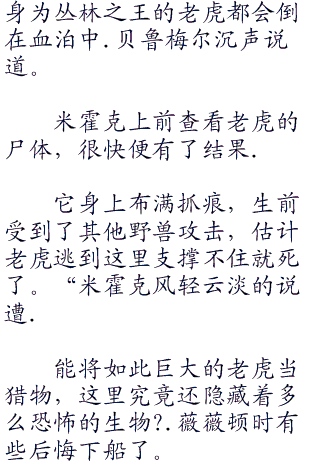 身为丛林之王的老虎都会倒
在血泊中.贝鲁梅尔沉声说
道。
米霍克上前查看老虎的
尸体，很快便有了结果.
它身上布满抓痕，生前
受到了其他野兽攻击，估计
老虎逃到这里支撑不住就死
了。“米霍克风轻云淡的说
遭.
能将如此巨大的老虎当
猎物，这里究竟还隐藏着多
么恐怖的生物?.薇薇顿时有
些后悔下船了。